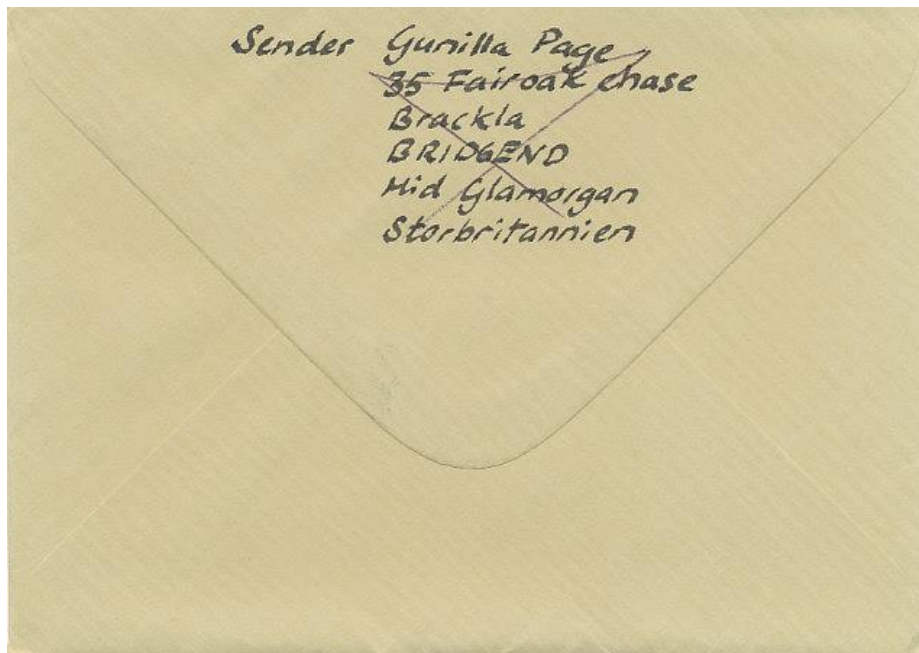 Sender Gunilla Page
35 Fairoak chase
Brackla
BRIDGEND
Mid Glamorgan
Storbritannien